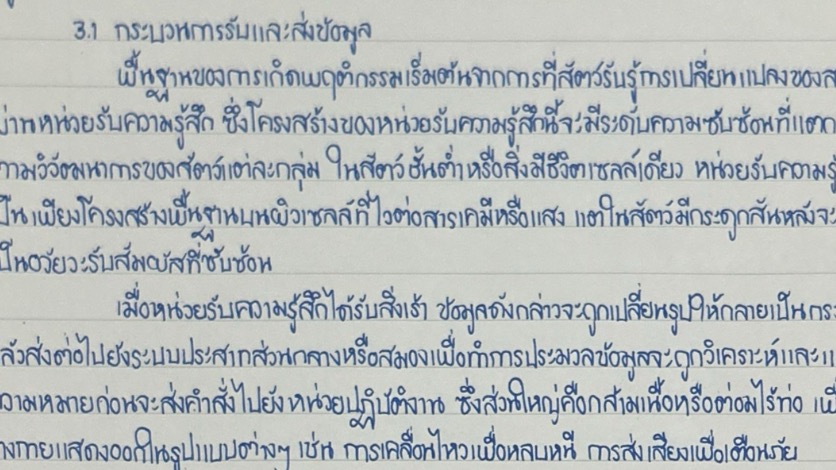 3.1 กระบวนการรับและส่งข้อมูล
พื้นฐานของการเกิดพฤติกรรมเริ่มต้นจากการที่สัตว์รับรู้การเปลี่ยนแปลงของส
ผ่านหน่วยรับความรู้สึก ซึ่งโครงสร้างของหน่วยรับความรู้สึกนี้จะมีระดับความซับซ้อนที่แตก
ตามวิวัฒนาการของสัตว์แต่ละกลุ่ม ในสัตว์ชั้นต่ำหรือสิ่งมีชีวิตเซลล์เดียว หน่วยรับความรู้
ป็นเพียงโครงสร้างพื้นฐานบนผิวเซลล์ที่ไวต่อสารเคมีหรือแสง แต่ในสัตว์มีกระดูกสันหลังจะ
ป็นอวัยวะรับสัมผัสที่ซับซ้อน
เมื่อหน่วยรับความรู้สึกได้รับสิ่งเร้า ข้อมูลดังกล่าวจะถูกเปลี่ยนรูปให้กลายเป็นกระ
ล้วส่งต่อไปยังระบบประสาทส่วนกลางหรือสมองเพื่อทำการประมวลข้อมูลจะถูกวิเคราะห์และแ
วามหมายก่อนจะส่งคำสั่งไปยังหน่วยปฏิบัติงาน ซึ่งส่วนใหญ่คือกล้ามเนื้อหรือต่อมไร้ท่อ เพื
างกายแสดงออกในรูปแบบต่างๆ เช่น การเคลื่อนไหวเพื่อหลบหนี การส่งเสียงเพื่อเตือนภัย